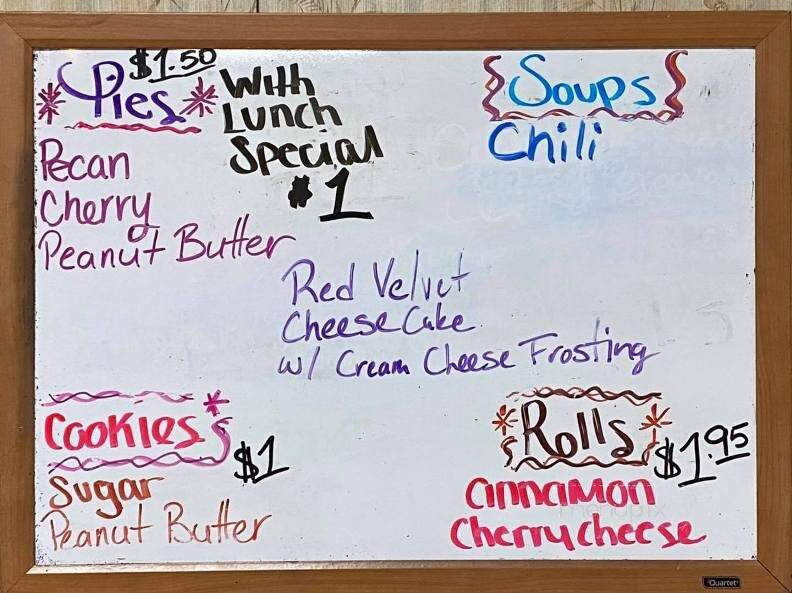 $1.50
Pies
With
Lunch
Special
#1
Pecan
Cherry
Peanut Butter
Soups
Chili
Red Velvet
Cheese Cake
w/ Cream Cheese Frosting
Cookies
$1
Sugar
Peanut Butter
Rolls
$1.95
Cinnamon
Cherry cheese
Quartet